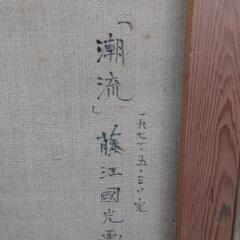 「潮流」藤江國光画
一九七一・五・三〇完